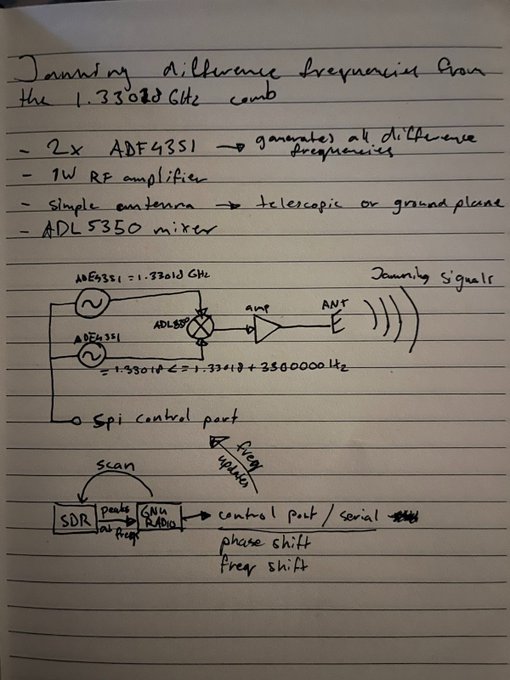 Jamming difference frequencies from
the 1.33018 GHz comb
- 2x ADF4351 → generates all difference
frequencies
- 1W RF amplifier
- simple antenna → telescopic or ground plane
- ADL5350 mixer
ADF4351 = 1.33018 GHz
Jamming signals
amp
ANT
ADL5350
ADF4351
= 1.33018 <= 1.33018 + 3500000 Hz
Spi control port
freq
updates
scan
SDR
peaks
at freq
GNU
RADIO
→ control port / serial
phase shift
freq shift